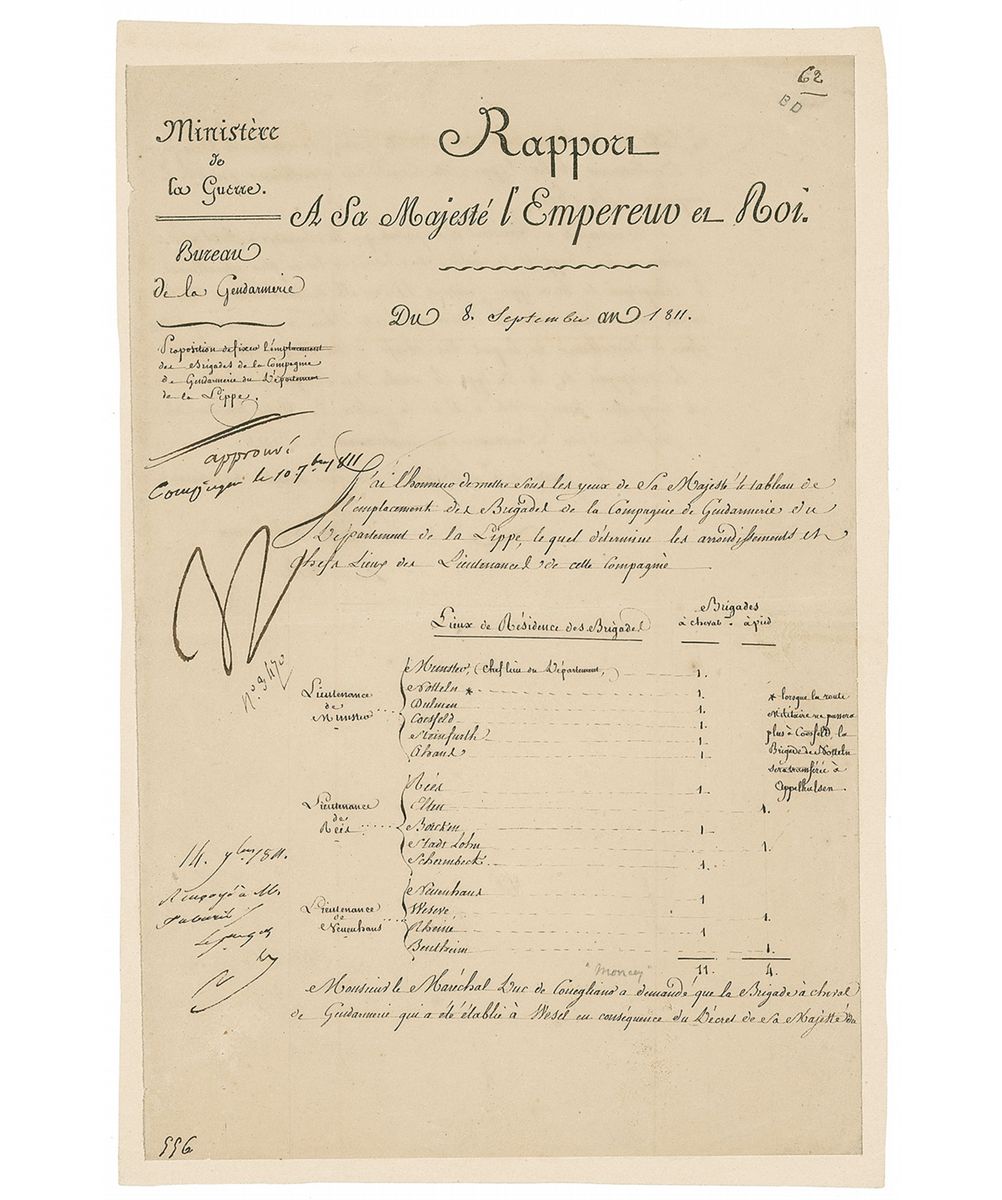 62
BD
Ministère
de
la Guerre.
Bureau
de la Gendarmerie
Proposition de fixer l'emplacement
des Brigades de la Compagnie
de Gendarmerie du Département
de la Lippe.
Rapport
A Sa Majesté l'Empereur et Roi.
Du 8. Septembre an 1811.
approuvé
Compiegne le 10. 7bre 1811
J'ai l'honneur de mettre sous les yeux de Sa Majesté le tableau de
l'emplacement des Brigades de la Compagnie de Gendarmerie du
Département de la Lippe, lequel détermine les arrondissements et
chefs Lieux des Lieutenances de cette Compagnie
N
No. 3470
Lieux de Résidence des Brigades
Brigades
à cheval à pied
Lieutenance
de
Munster
Munster, (Chef lieu du Département,) 1.
Notteln * 1.
Dulmen 1.
Coesfeld 1.
Steinfurth 1
Ahaus 1
* lorsque la route
militaire ne passera
plus à Coesfeld, la
Brigade de Notteln
sera transférée à
Appelhulsen.
Lieutenance
de
Réés
Réés 1.
Elten 1.
Borcken 1
Stadt Lohn 1.
Schermbeck 1.
Lieutenance
de
Neuenhaus
Neuenhaus 1
Weseve 1.
Rheine 1
Bentheim 1.
11. 4.
14. 7bre 1811.
Renvoyé à Mr
"Moncey"
Monsieur le Maréchal Duc de Conegliano a demandé que la Brigade à cheval
de Gendarmerie qui a été établie à Wesel en conséquence du Décret de Sa Majesté du
556